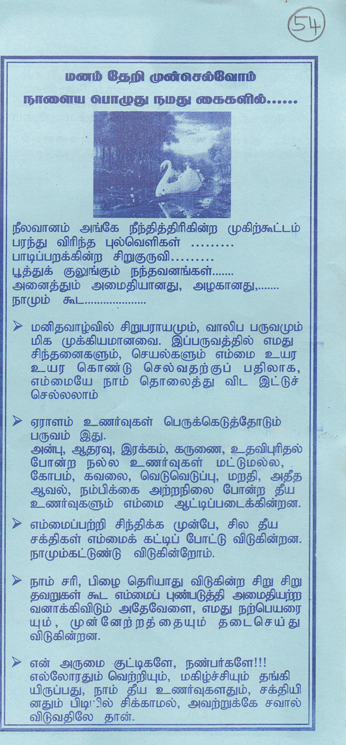 54
மனம் தேறி முன்செல்வோம்
நாளைய பொழுது நமது கைகளில்......
நீலவானம் அங்கே நீந்தித்திரிகின்ற முகிற்கூட்டம்
பரந்து விரிந்த புல்வெளிகள் .........
பாடிப்பறக்கின்ற சிறுகுருவி.........
பூத்துக் குலுங்கும் நந்தவனங்கள்.......
அனைத்தும் அமைதியானது, அழகானது,.......
நாமும் கூட....................
➢ மனிதவாழ்வில் சிறுபராயமும், வாலிப பருவமும்
மிக முக்கியமானவை. இப்பருவத்தில் எமது
சிந்தனைகளும், செயல்களும் எம்மை உயர
உயர கொண்டு செல்வதற்குப் பதிலாக,
எம்மையே நாம் தொலைத்து விட இட்டுச்
செல்லலாம்
➢ ஏராளம் உணர்வுகள் பெருக்கெடுத்தோடும்
பருவம் இது.
அன்பு, ஆதரவு, இரக்கம், கருணை, உதவிபுரிதல்
போன்ற நல்ல உணர்வுகள் மட்டுமல்ல,
கோபம், கவலை, வெடுவெடுப்பு, மறதி, அதீத
ஆவல், நம்பிக்கை அற்றநிலை போன்ற தீய
உணர்வுகளும் எம்மை ஆட்டிப்படைக்கின்றன.
➢ எம்மைப்பற்றி சிந்திக்க முன்பே, சில தீய
சக்திகள் எம்மைக் கட்டிப் போட்டு விடுகின்றன.
நாமும்கட்டுண்டு விடுகின்றோம்.
➢ நாம் சரி, பிழை தெரியாது விடுகின்ற சிறு சிறு
தவறுகள் கூட எம்மைப் புண்படுத்தி அமைதியற்ற
வனாக்கிவிடும் அதேவேளை, எமது நற்பெயரை
யும், முன்னேற்றத்தையும் தடைசெய்து
விடுகின்றன.
➢ என் அருமை குட்டிகளே, நண்பர்களே!!!
எல்லோரதும் வெற்றியும், மகிழ்ச்சியும் தங்கி
யிருப்பது, நாம் தீய உணர்வுகளதும், சக்தியி
னதும் பிடியில் சிக்காமல், அவற்றுக்கே சவால்
விடுவதிலே தான்.